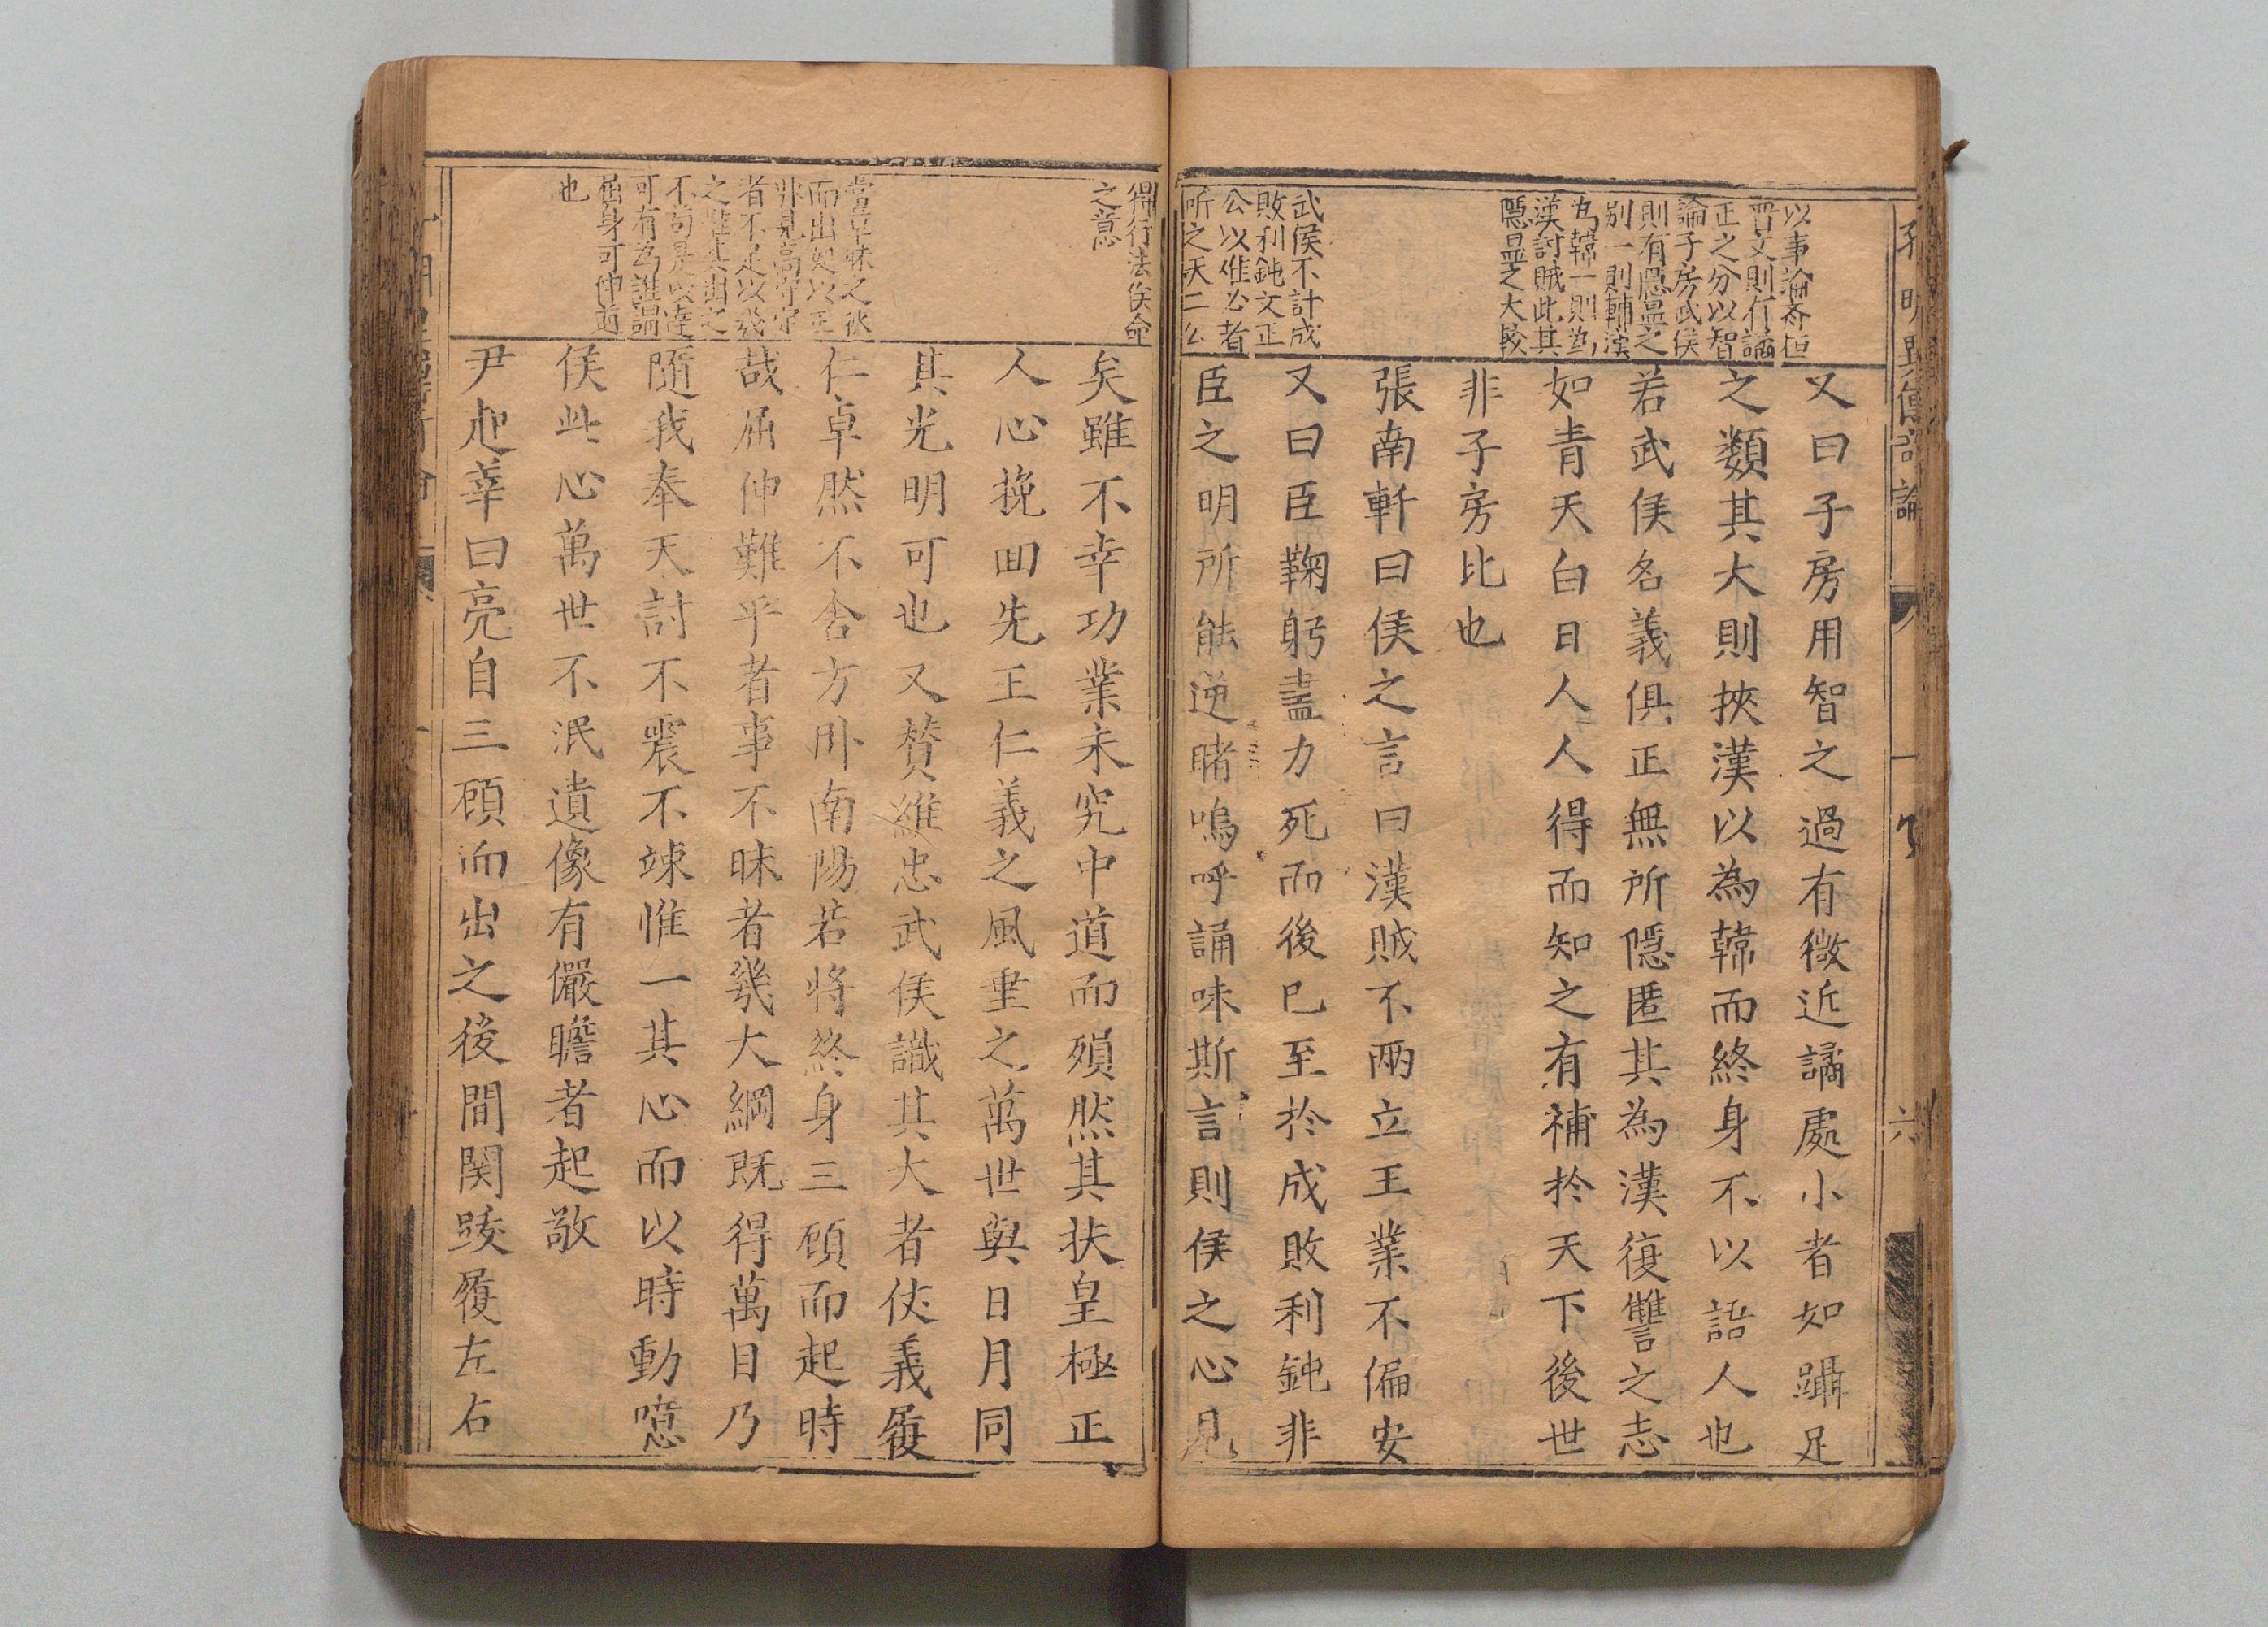 以事論齊桓
晋文則有譎
正之分以智
論子房武侯
則有隠显之
别一則輔漢
為韓一則為
漢討賊此其
隠显之大較
武侯不計成
敗利鈍文正
公以惟必者
听之天二公
又曰子房用智之過有微近譎處小者如躡足
之類其大則挾漢以為韓而終身不以語人也
若武侯名義俱正無所隠匿其為漢復讐之志
如青天白日人人得而知之有補扵天下後世
非子房比也
張南軒曰侯之言曰漢賊不兩立王業不偏安
又曰臣鞠躬盡力死而後已至扵成敗利鈍非
臣之明所能逆睹嗚呼誦味斯言則侯之心見
得行法俟命
之意
而出處以正
者不足以發
可有為誰謂
屈身可伸道
也
矣雖不幸功業未究中道而殞然其扶皇極正
人心挽回先王仁義之風垂之萬世與日月同
其光明可也又賛維忠武侯識其大者仗義履
仁卓然不舍方卧南陽若将終身三顧而起時
哉屈伸難乎者事不昧者幾大綱既得萬目乃
随我奉天討不震不竦惟一其心而以時動噫
侯此心萬世不泯遺像有儼瞻者起敬
尹起莘曰亮自三顧而出之後間関跋履左右